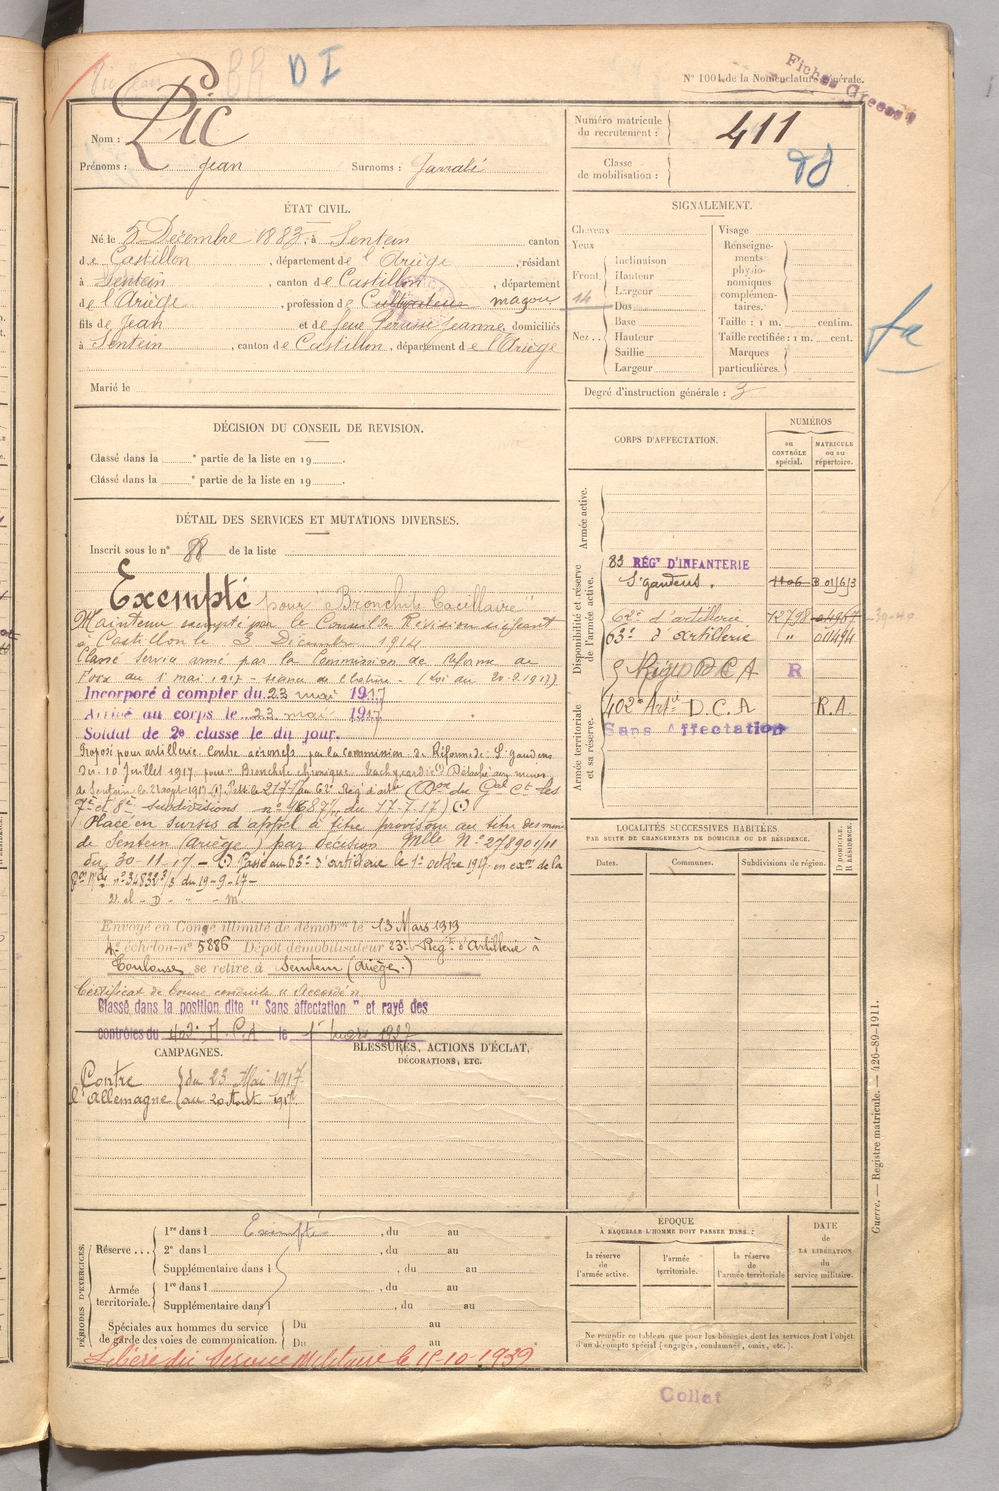 D I
N° 1001 de la Nomenclature générale.
Fiches
Nom : Pic
Prénoms : Jean Surnoms :
Numéro matricule du recrutement : 411
Classe de mobilisation :
ÉTAT CIVIL.
Né le 5 Decembre 1883, à Sentein canton
de Castillon, département de l'Ariège, résidant
à Sentein, canton de Castillon, département
de l'Ariège, profession de Cultivateur maçon
fils de Jean et de feue Jeanne, domiciliés
à Sentein, canton de Castillon, département de l'Ariège
Marié le
SIGNALEMENT.
Cheveux
Yeux
Front.
Inclinaison
Hauteur
Largeur
Nez..
Dos
Base
Hauteur
Saillie
Largeur
Visage
Renseignements physionomiques complémentaires.
Taille : 1 m. centim.
Taille rectifiée : 1 m. cent.
Marques particulières.
Degré d'instruction générale : 3
DÉCISION DU CONSEIL DE REVISION.
Classé dans la e partie de la liste en 19 .
Classé dans la e partie de la liste en 19 .
DÉTAIL DES SERVICES ET MUTATIONS DIVERSES.
Inscrit sous le n° 88 de la liste
Exempté pour "Bronchite Bacillaire"
Maintenu exempté par le Conseil de Révision siégeant
à Castillon le 3 Décembre 1914
Classé Service armé par la Commission de Réforme de
Foix du 1 mai 1917 - séance de (Loi du 20.2.1917).
Incorporé à compter du 23 mai 1917
Arrivé au corps le 23 mai 1917
Soldat de 2e classe le dit jour.
Proposé pour artillerie contre aéronefs par la Commission de Réforme de St gaudens
du 10 Juillet 1917 pour "Bronchite chronique. Détaché aux mines
de Sentein le 21 août 1917 au 62e Rég. d'artie
7e et 8e subdivisions n° 4687/ du 17.7.17)
Placé en sursis d'appel à titre provisoire au titre des mines
de Sentein (Ariège) par Décision Mlle N° 278901/11
du 30-11-17 - Passé au 63e d'artillerie le 1er octobre 1917 en exon de la
n° 34832 3/3 du 19-9-17 -
Envoyé en Congé illimité de démobon le 13 Mars 1919
4e échelon n° 5886 Dépôt démobilisateur 23e Régt d'Artillerie à
Toulouse se retire à Sentein (Ariège.)
Certificat de bonne conduite "Accordé".
Classé dans la position dite "Sans affectation" et rayé des
contrôles du D.C.A le 1er 1937
CORPS D'AFFECTATION.
NUMÉROS
au CONTRÔLE spécial.
MATRICULE ou au répertoire.
Armée active.
Disponibilité et réserve de l'armée active.
83 RÉGT D'INFANTERIE
St gaudens.
62e d'artillerie
63e d'artillerie " 00494
D C A R
402e Artie D.C.A R.A.
Sans Affectation
Armée territoriale et sa réserve.
LOCALITÉS SUCCESSIVES HABITÉES
PAR SUITE DE CHANGEMENTS DE DOMICILE OU DE RÉSIDENCE.
Dates.
Communes.
Subdivisions de région.
D DOMICILE.
R RÉSIDENCE.
CAMPAGNES.
Contre l'Allemagne
du 23 Mai 1917
au 20 Aout 1917
BLESSURES, ACTIONS D'ÉCLAT,
DÉCORATIONS, ETC.
PÉRIODES D'EXERCICES.
Réserve...
1re dans l Exempté, du au
2e dans l , du au
Supplémentaire dans l , du au
Armée territoriale.
1re dans l , du au
Supplémentaire dans l , du au
Spéciales aux hommes du service de garde des voies de communication.
Du au
Du au
Libéré du Service Militaire le 15-10-1939
ÉPOQUE
À LAQUELLE L'HOMME DOIT PASSER DANS :
la réserve de l'armée active.
l'armée territoriale.
la réserve de l'armée territoriale
DATE DE LA LIBÉRATION du service militaire.
Ne remplir ce tableau que pour les hommes dont les services font l'objet
d'un décompte spécial (engagés, condamnés, omis, etc.).
Guerre. — Registre matricule. — 426-89-1911.
Collat